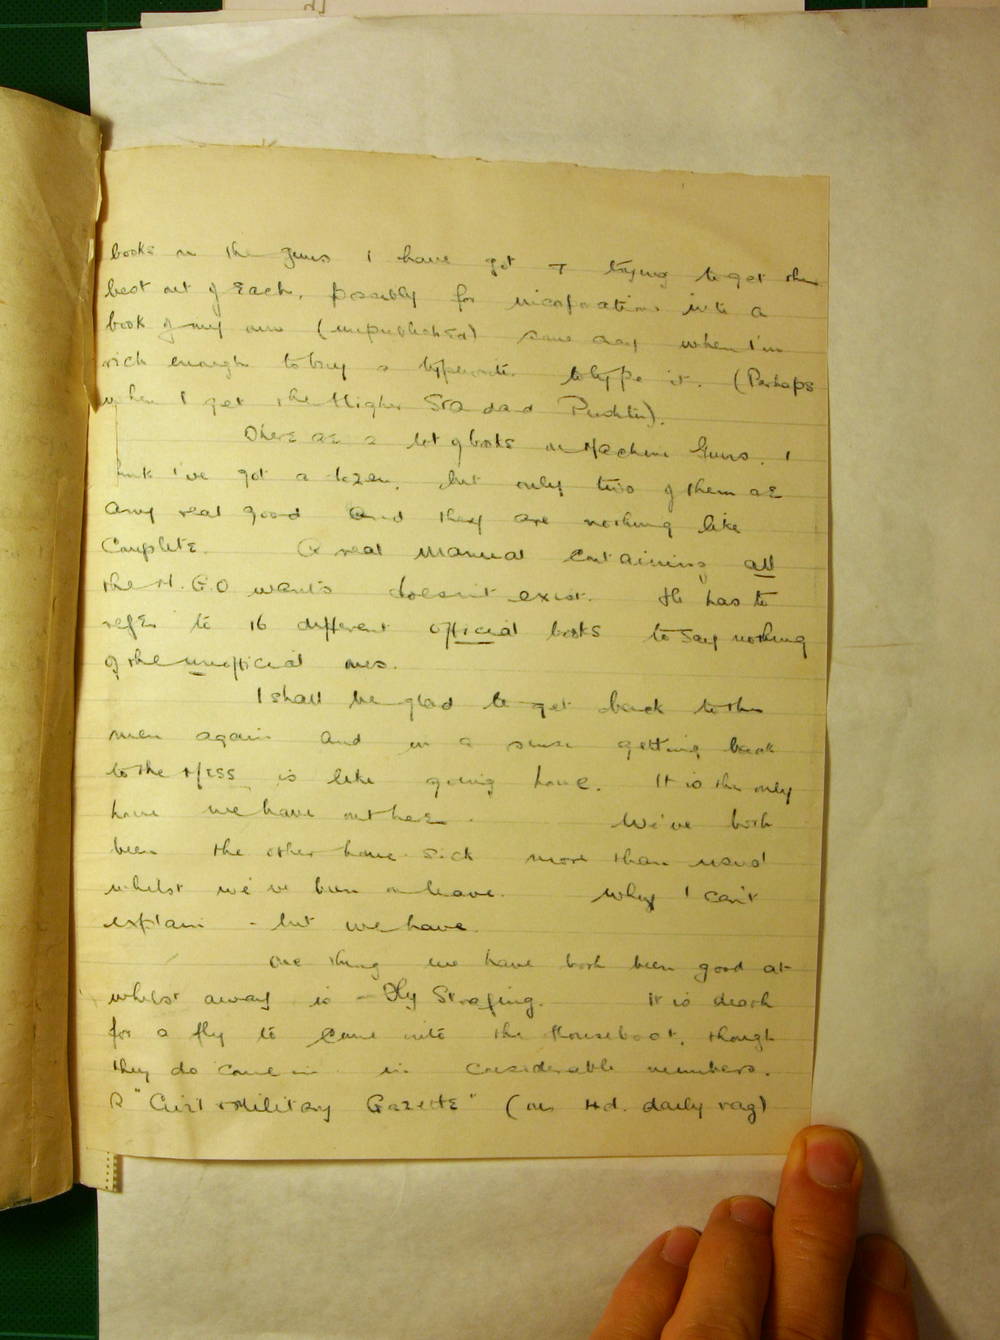 books on the guns I have got & trying to get the
best out of each, possibly for incorporation into a
book of my own (unpublished) some day when I'm
rich enough to buy a typewriter to type it. (Perhaps
when I get the Higher Standard Pushtu).
There are a lot of books on Machine Guns. I
think I've got a dozen, but only two of them are
any real good and they are nothing like
Complete. A real Manual containing all
the M.G.O wants doesn't exist. He has to
refer to 16 different official books to say nothing
of the unofficial ones.
I shall be glad to get back to the
men again and in a sense getting back
to the Mess is like going home. It is the only
home we have out here. We've both
been the other home sick more than usual
whilst we've been on leave. Why I can't
explain - but we have.
One thing we have both been good at
whilst away is - Fly Strafing. It is death
for a fly to come into the Houseboat, though
they do come in in considerable numbers.
A "Civil & Military Gazette" (our daily rag)